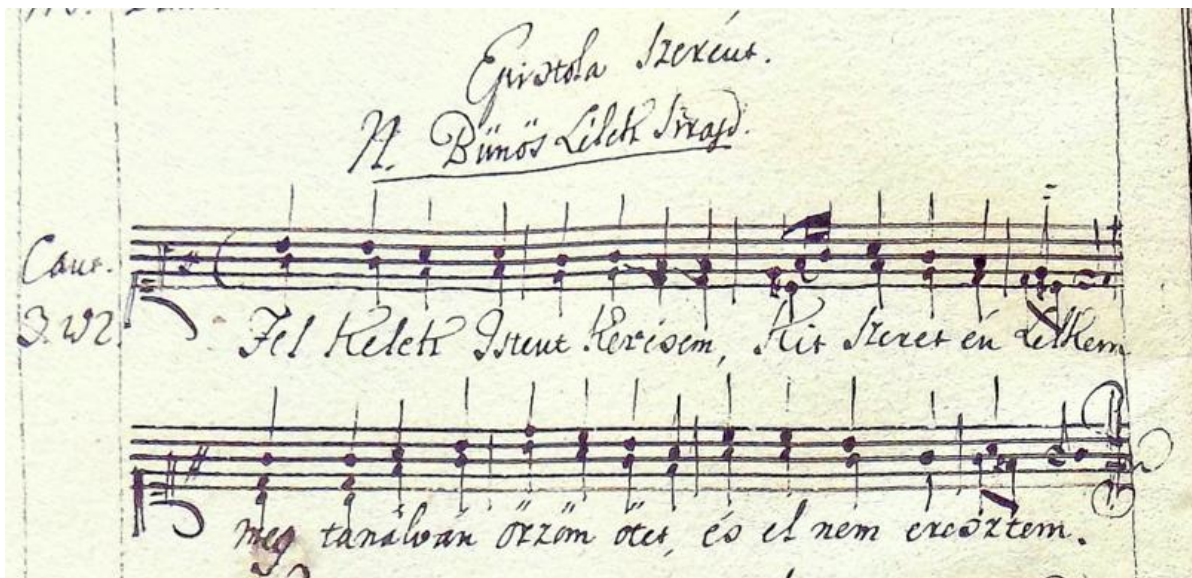 Epistola Szerént.
N. Bűnös Lélek Sirasd.
Cant.
Fel Kelek Istent Keresem, Kit Szeret én Lelkem
meg tanálván őrzöm őtet, és el nem eresztem.